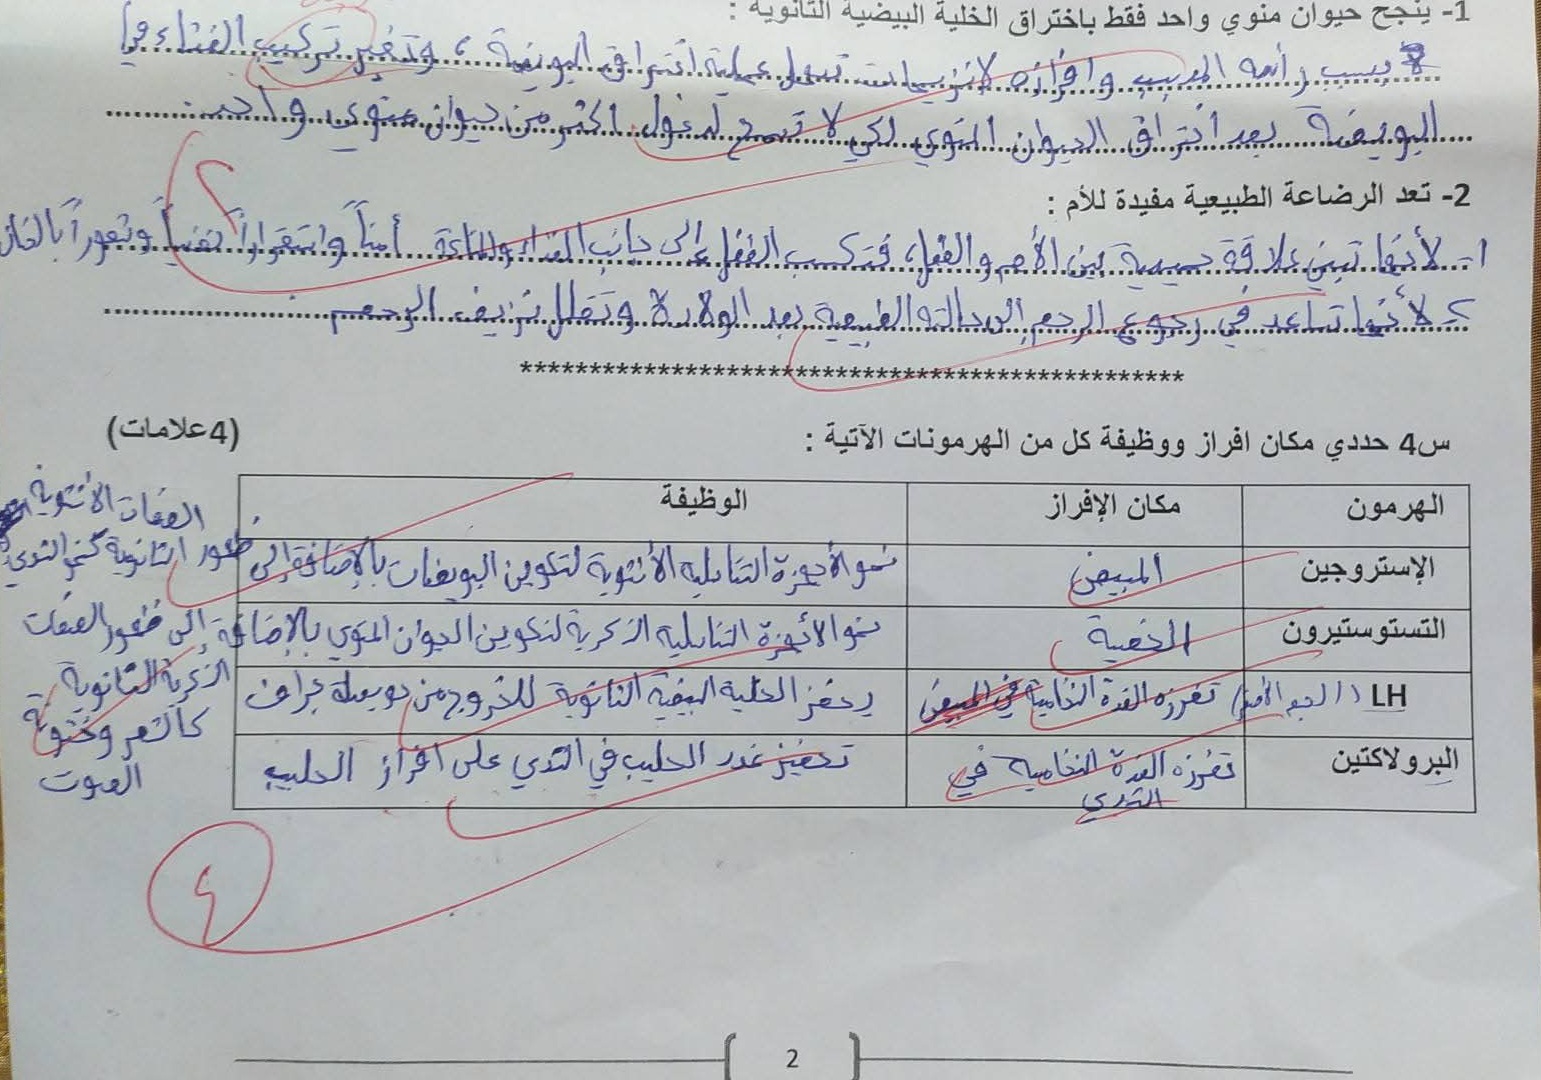 1- ينجح حيوان منوي واحد فقط باختراق الخلية البيضية الثانوية :
بسبب رأسه المدبب وافرازه لانزيمات تسهل عملية اختراق البويضة ، وتغير تركيب الغشاء في
البويضة بعد اختراق الحيوان المنوي لكي لا تسمح لدخول اكثر من حيوان منوي واحد.
2- تعد الرضاعة الطبيعية مفيدة للأم :
1- لأنها تبني علاقة حميمية بين الأم والطفل، فتكسب الطفل إلى جانب الغذاء والمناعة أمناً واستقراراً نفسياً وشعوراً بالحنان
2- لأنها تساعد في رجوع الرحم إلى حالته الطبيعية بعد الولادة وتقلل نزيف الرحم
**************************************************
س4 حددي مكان افراز ووظيفة كل من الهرمونات الآتية : (4علامات)
الهرمون مكان الإفراز الوظيفة
الإستروجين المبيض نمو الأجهزة التناسلية الأنثوية لتكوين البويضات بالإضافة إلى ظهور الصفات الأنثوية الثانوية كنمو الثدي
التستوستيرون الخصية نمو الأجهزة التناسلية الذكرية لتكوين الحيوان المنوي بالإضافة إلى ظهور الصفات
الذكرية الثانوية
كالشعر وخشونة
الصوت
LH (الجسم الأصفر) تفرزه الغدة النخامية في المبيض يحفز الخلية البيضية الثانوية للخروج من حويصلة جراف
البرولاكتين تفرزه الغدة النخامية في الثدي تحفيز غدد الحليب في الثدي على افراز الحليب
٤
2